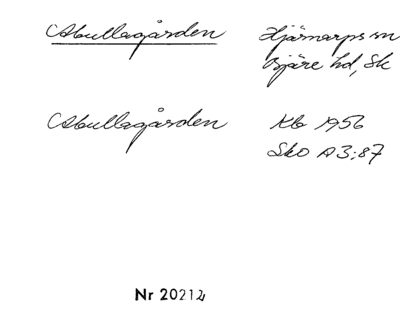 Abullagården Hjärnarps sn
Bjäre hd, Sk
Abullagården Kb 1956
Sko A3:87
Nr 20212